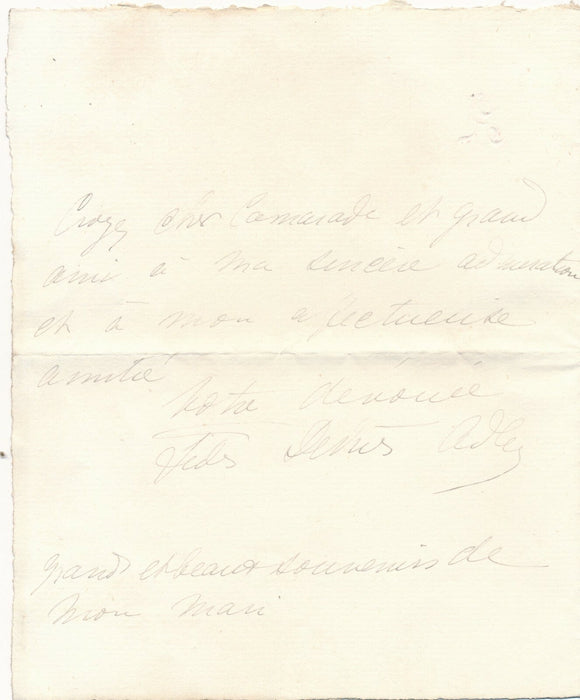 Croyez cher Camarade et grand
ami à ma sincère admiration
et à mon affectueuse
amitié
Votre dévouée
Fidès Devriès Adler
grands et beaux souvenirs de
mon mari